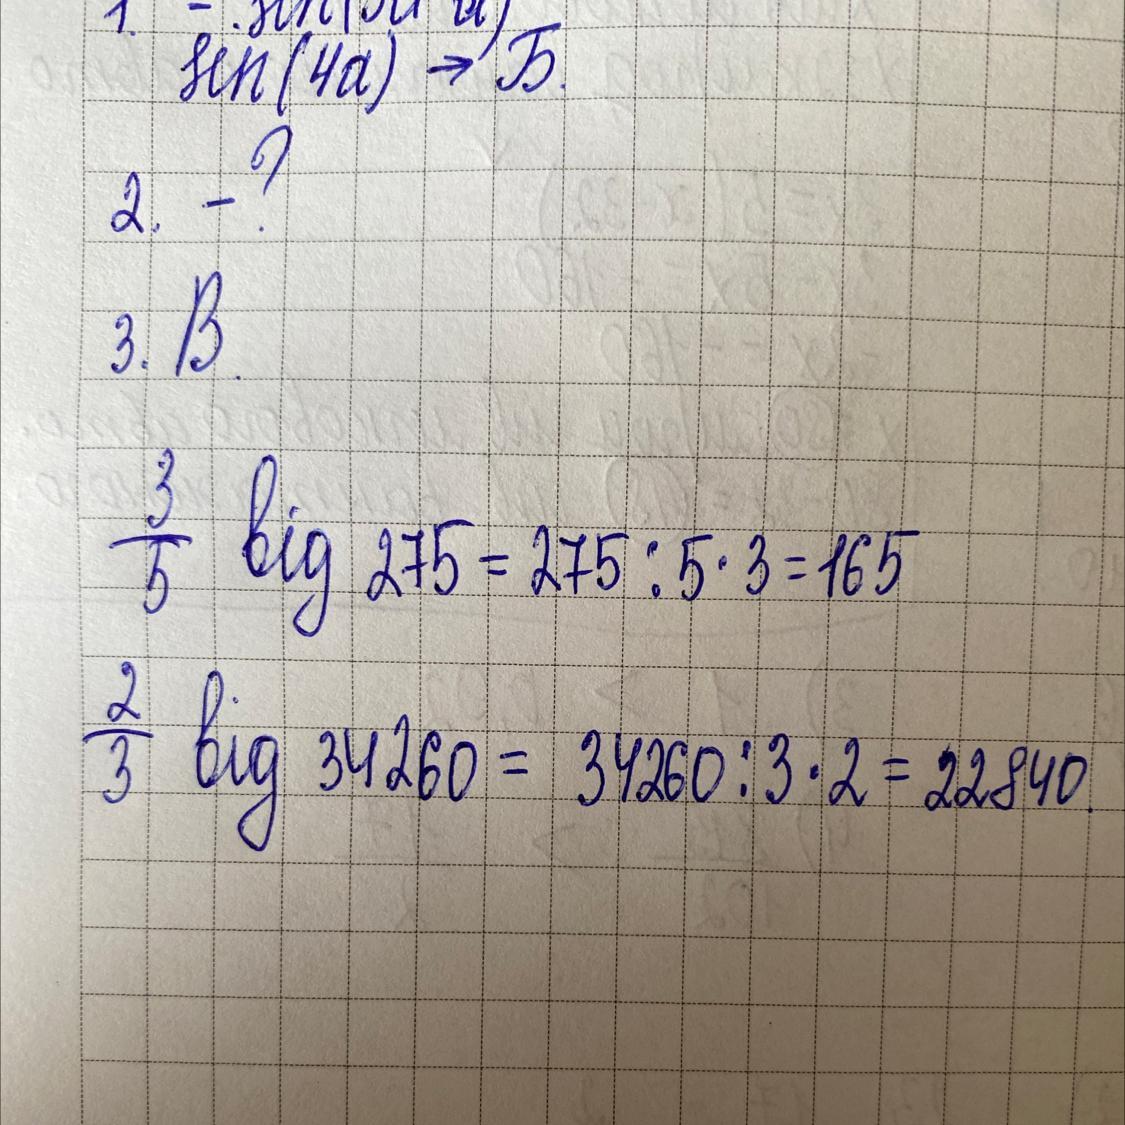 sin(4a) → Б.
2. - ?
3. В.
3/5 від 275 = 275 : 5 · 3 = 165
2/3 від 34260 = 34260 : 3 · 2 = 22840.